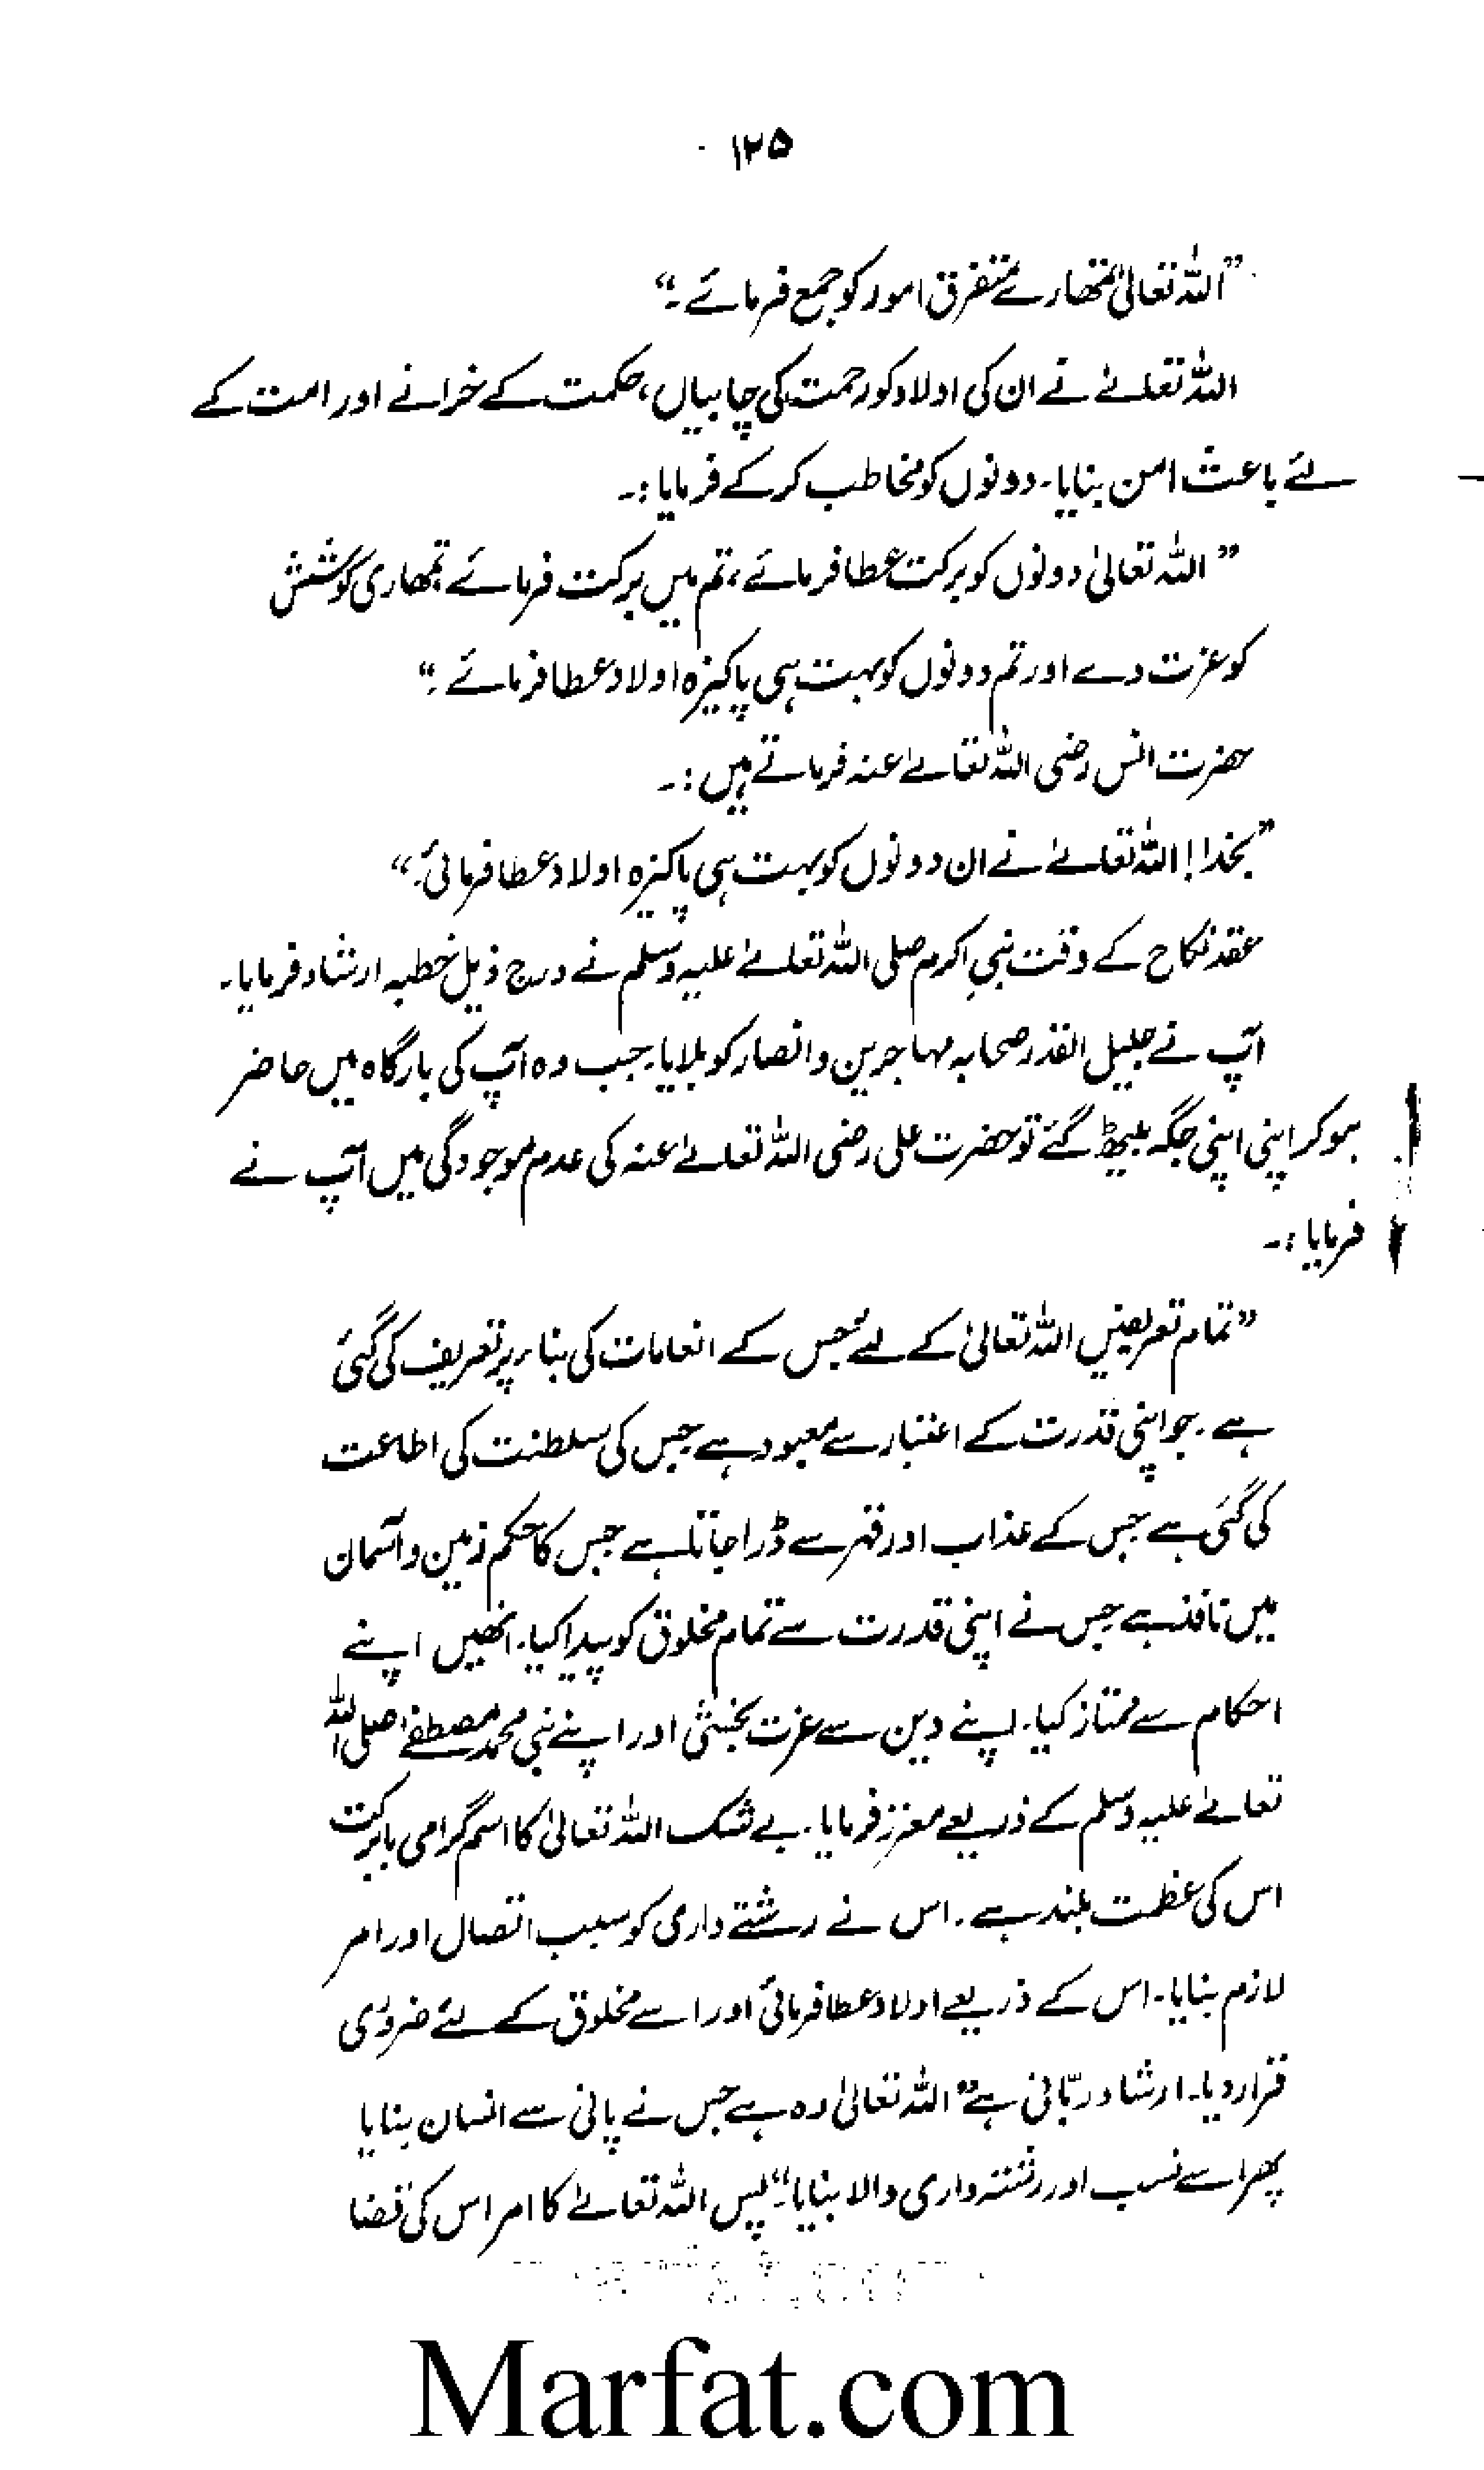 ۱۲۵
”اللہ تعالیٰ تمھارے متفرق امور کو جمع فرمائے۔“
اللہ تعالےٰ نے ان کی اولاد کو رحمت کی چابیاں، حکمت کے خزانے اور امت کے
لئے باعث امن بنایا۔ دونوں کو مخاطب کر کے فرمایا:۔
”اللہ تعالیٰ دونوں کو برکت عطا فرمائے، تم میں برکت فرمائے تمھاری کوشش
کو عزت دے اور تم دونوں کو بہت ہی پاکیزہ اولاد عطا فرمائے۔“
حضرت انس رضی اللہ تعالےٰ عنہ فرماتے ہیں:۔
”بخدا! اللہ تعالےٰ نے ان دونوں کو بہت ہی پاکیزہ اولاد عطا فرمائی۔“
عقد نکاح کے وقت نبیِ اکرم صلی اللہ تعالےٰ علیہ وسلم نے درج ذیل خطبہ ارشاد فرمایا۔
آپ نے جلیل القدر صحابہ مہاجرین و انصار کو بلایا۔ جب وہ آپ کی بارگاہ میں حاضر
ہو کر اپنی اپنی جگہ بیٹھ گئے تو حضرت علی رضی اللہ تعالےٰ عنہ کی عدم موجودگی میں آپ نے
فرمایا:۔
”تمام تعریفیں اللہ تعالیٰ کے لئے جس کے انعامات کی بناء پر تعریف کی گئی
ہے۔ جو اپنی قدرت کے اعتبار سے معبود ہے جس کی سلطنت کی اطاعت
کی گئی ہے جس کے عذاب اور قہر سے ڈرا جاتا ہے جس کا حکم زمین و آسمان
میں نافذ ہے جس نے اپنی قدرت سے تمام مخلوق کو پیدا کیا۔ انھیں اپنے
احکام سے ممتاز کیا۔ اپنے دین سے عزت بخشی اور اپنے نبی محمد مصطفےٰ صلی اللہ
تعالےٰ علیہ وسلم کے ذریعے معزز فرمایا۔ بے شک اللہ تعالیٰ کا اسم گرامی بابرکت
اس کی عظمت بلند ہے۔ اس نے رشتے داری کو سبب اتصال اور امر
لازم بنایا۔ اس کے ذریعے اولاد عطا فرمائی اور اسے مخلوق کے لئے ضروری
قرار دیا۔ ارشاد ربّانی ہے ”اللہ تعالیٰ وہ ہے جس نے پانی سے انسان بنایا
پھر اسے نسب اور رشتہ داری والا بنایا۔“ پس اللہ تعالےٰ کا امر اس کی قضا
Marfat.com